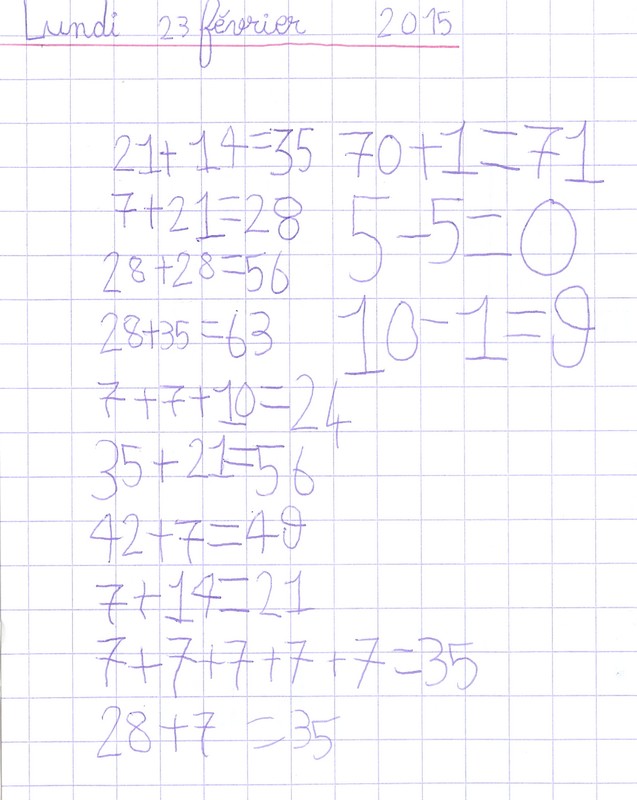 Lundi 23 février 2015
21+14=35 70+1=71
7+21=28 5-5=0
28+28=56
28+35=63 10-1=9
7+7+10=24
35+21=56
42+7=49
7+14=21
7+7+7+7+7=35
28+7=35